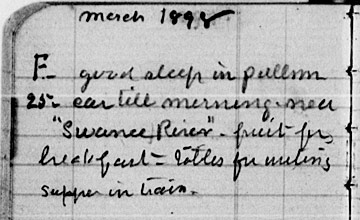 March 1898
F. good sleep in pullmn
25- car till morning near
"Swanee River" - fruit for
breakfast -
supper in train.